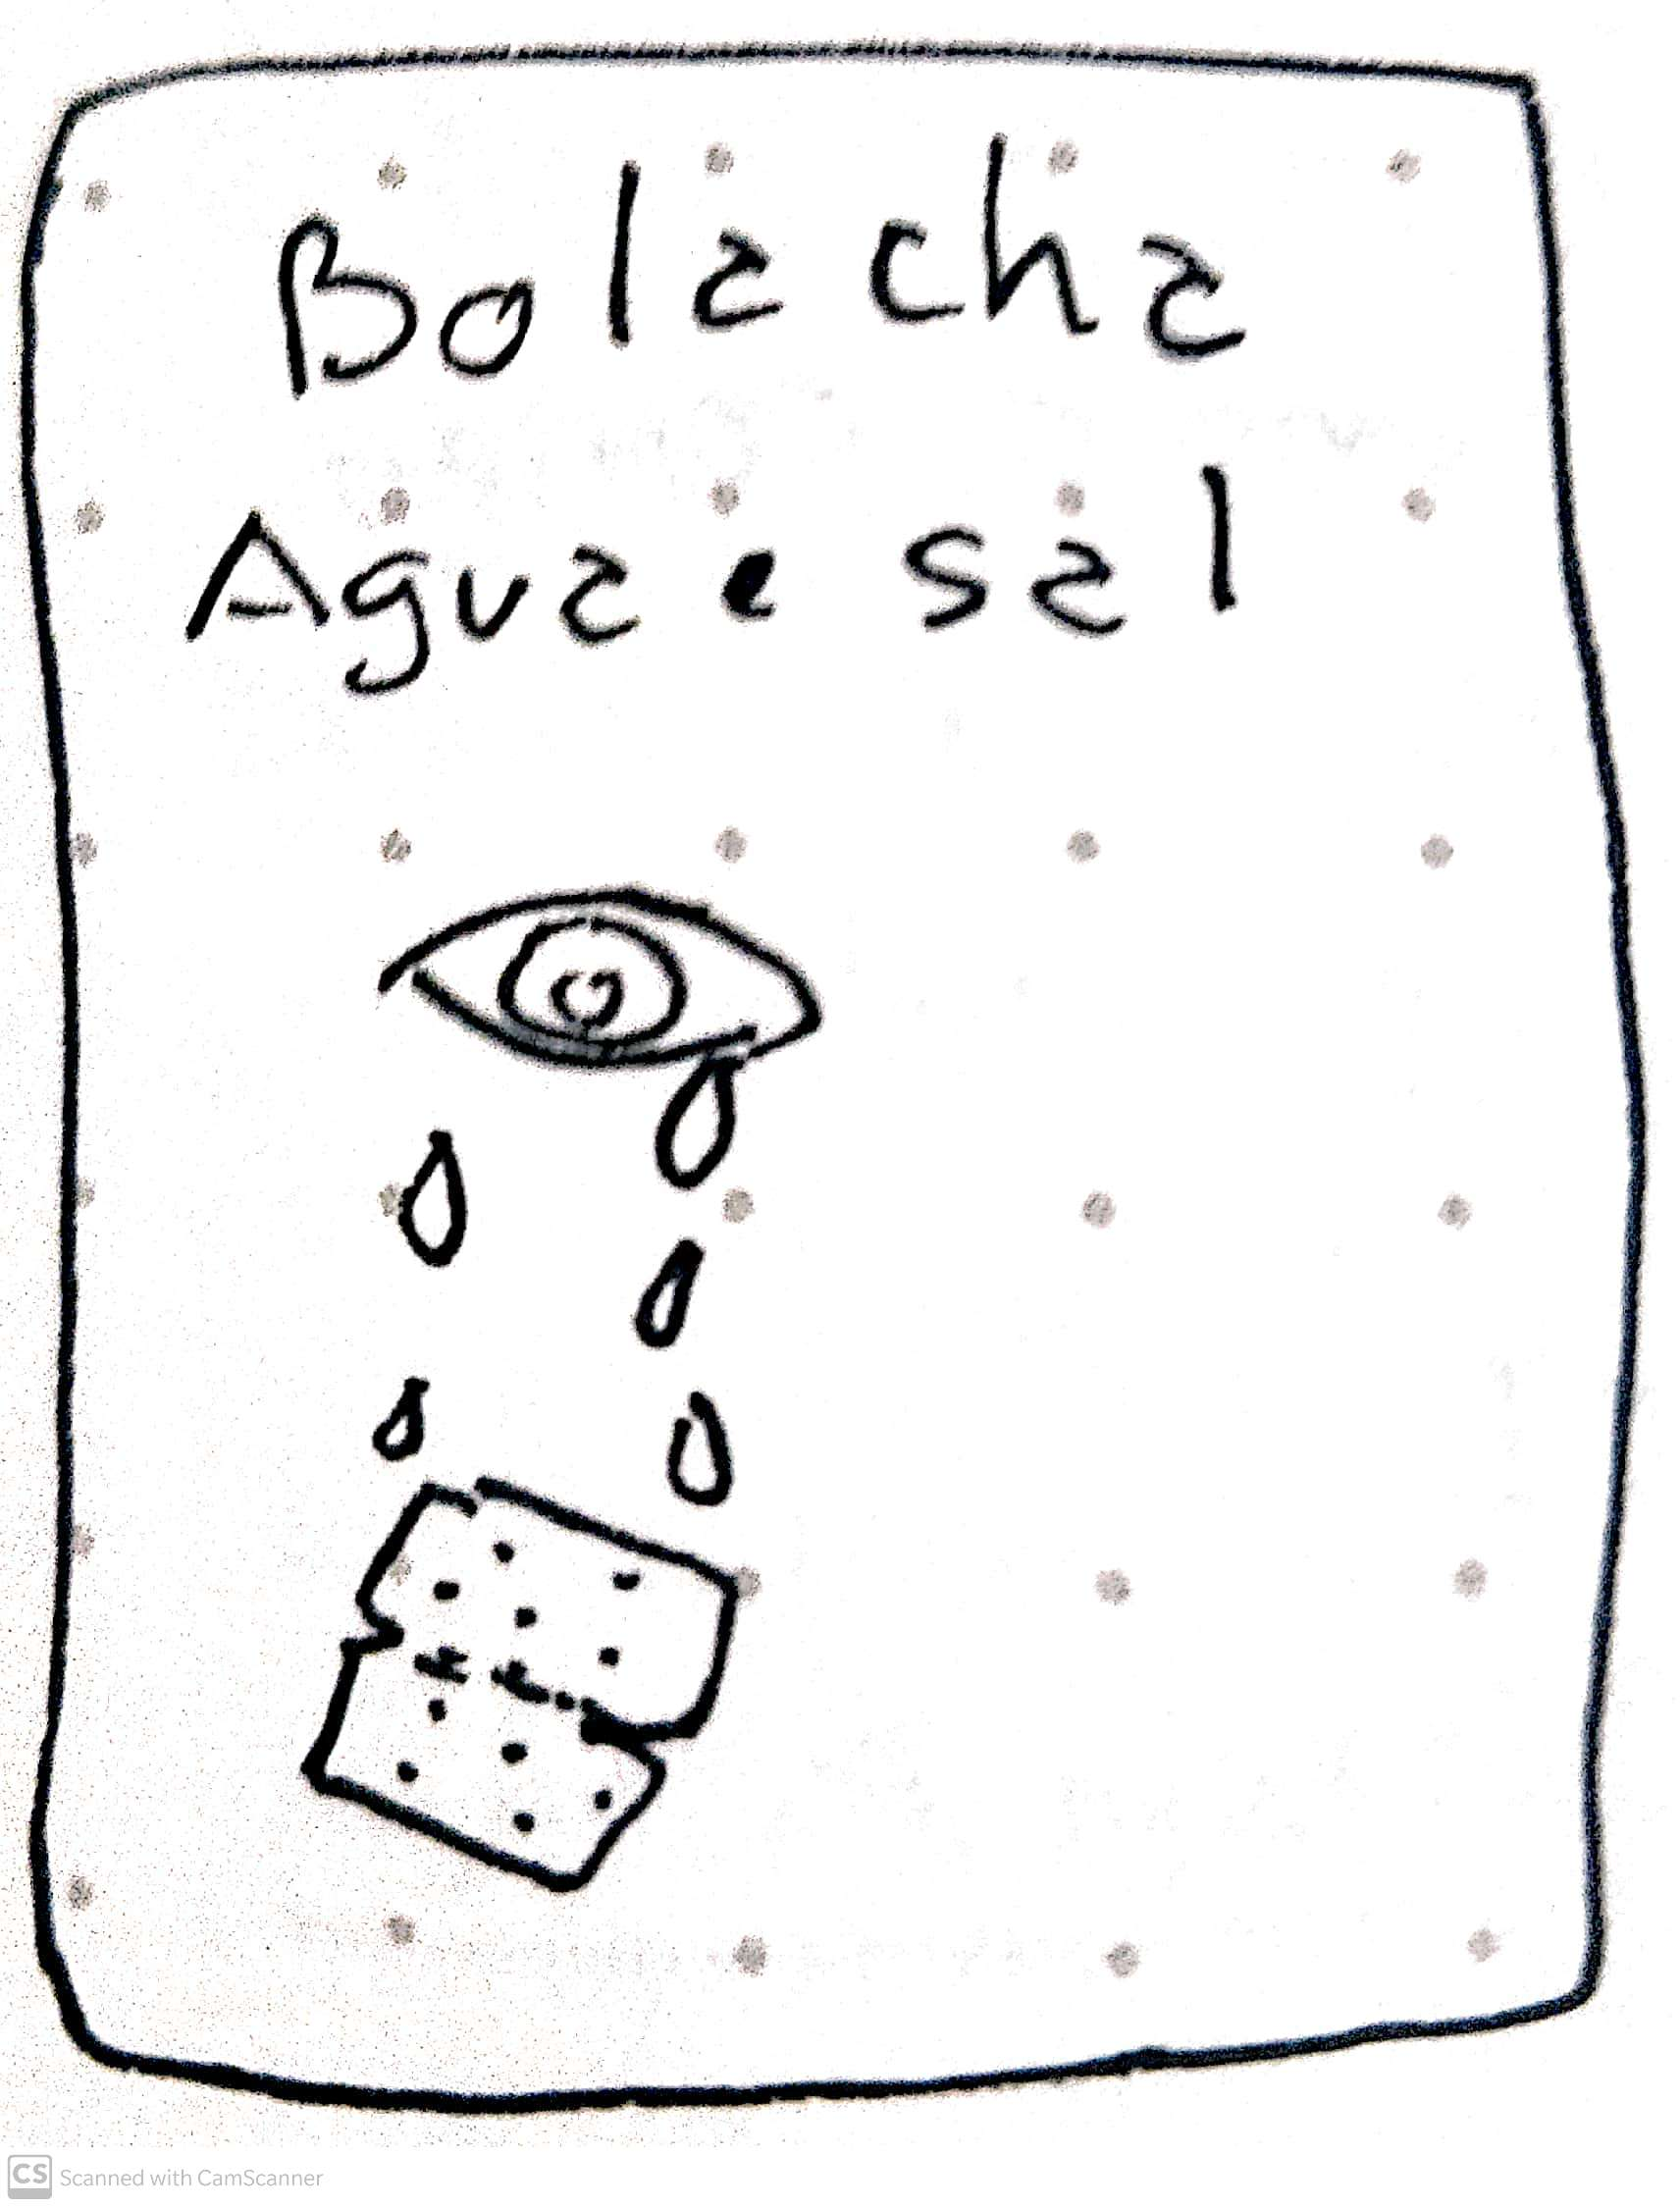 Bolacha
Agua e sal
CS Scanned with CamScanner